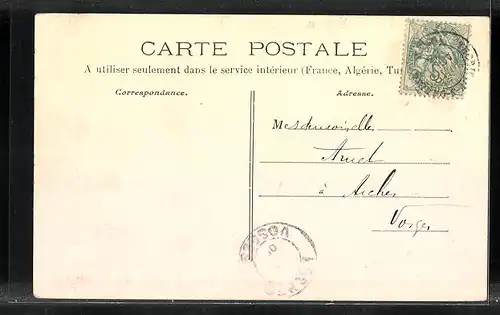 CARTE POSTALE
A utiliser seulement dans le service intérieur (France, Algérie, Tu
Correspondance.
Adresse.
Mesdemoiselles
à Arches
Vosges
VOSGES